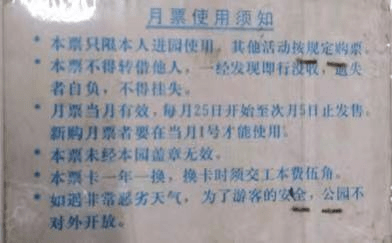 月票使用须知
* 本票只限本人进园使用，其他活动按规定购票。
* 本票不得转借他人，一经发现即行没收，遗失
者自负，不得挂失。
* 月票当月有效，每月25日开始至次月5日止发售。
新购月票者要在当月1号才能使用。
* 本票未经本园盖章无效。
* 本票卡一年一换，换卡时须交工本费伍角。
* 如遇非常恶劣天气，为了游客的安全，公园不
对外开放。